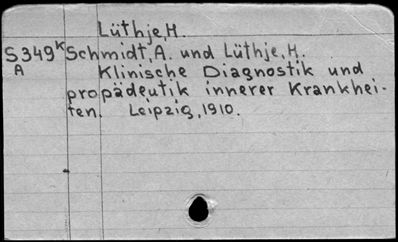 Lüthje, H.
S349K Schmidt, A. und Lüthje, H.
A Klinische Diagnostik und
propädeutik innerer Krankhei-
ten. Leipzig, 1910.